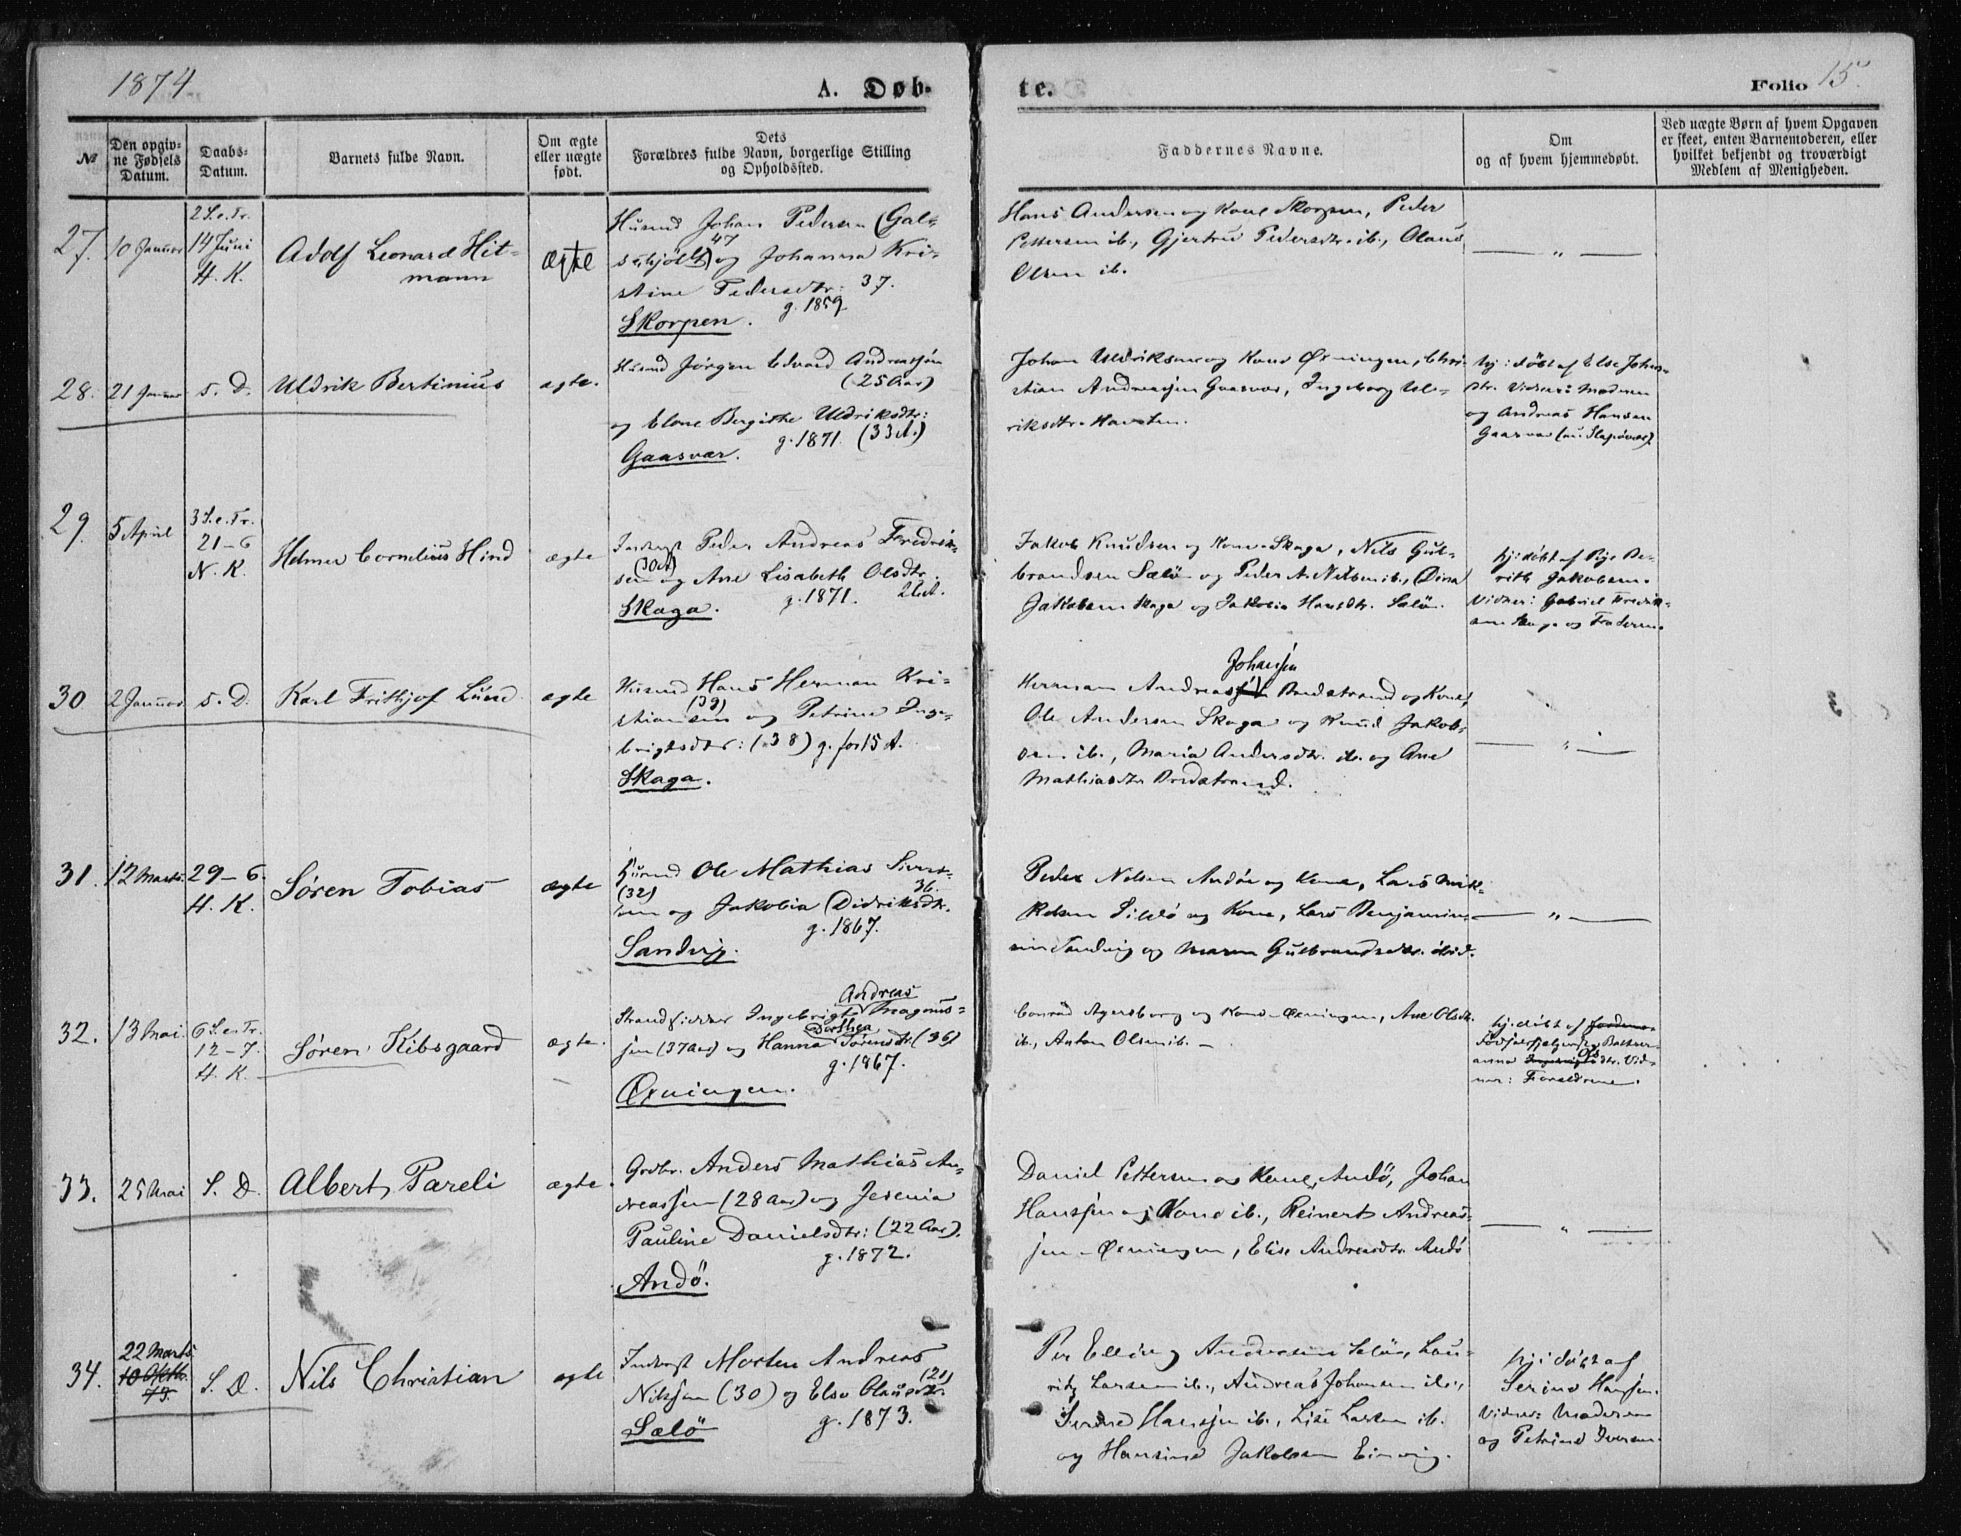 1874
A. Døb-
te.
Folio 15.
№
Den opgiv-
ne Fødsels
Datum.
Daabs-
Datum.
Barnets fulde Navn.
Om ægte
eller uægte
født.
Dets
Forældres fulde Navn, borgerlige Stilling
og Opholdssted.
Faddernes Navne.
Om
og af hvem hjemmedøbt.
Ved uægte Børn af hvem Opgaven
er skeet, enten Barnemoderen, eller
hvilket bekjendt og troværdigt
Medlem af Menigheden.
27.
10 Januar
2 S. e. Tr.
14 Juni
H. K.
Adolf Leonard Hit-
mann
ægte
Husmd Johan Pedersen (Gal-
47
og Johanna Kri-
stine Pedersdtr: 37.
g. 1859
Skorpen.
Hans Andersen og Kone Skorpen, Peder
Pettersen ib., Gjertru Pedersdtr. ib., Olaus
Olsen ib.
— " —
28.
21 Januar
s. D.
Uldrik Bertinius
ægte.
Husmd Jørgen Edvard Andreassen
(25 Aar)
og Elone Bergithe Uldriksdtr:
g. 1871. (33 A.)
Gaasvær.
Johan Uldriksen og Kone Øxningen, Chri-
stian Andreassen Gaasvær, Ingeborg Ul-
riksdtr. Havsten.
hj: døbt af Else Johns-
dtr. Vidner: Moderen
og Andreas Hansen
Gaasvær
29.
5 April
3 S. e. Tr.
21-6
N. K.
Helmer Cornelius Hind
ægte
Inderst Peder Andreas Fredrik-
sen og Ane Lisabeth Olsdtr.
g. 1871.
Skaga.
Jakob Knudsen og Kone Skaga, Nils Gul-
brandsen Sælø og Peder A. Nilsen ib., Dina
Jakobsen Skaga og Jakobia Hansdtr. Sælø.
hj: døbt af Pige Be-
rith Jakobsen.
Vidner: Gabriel Fredrik-
sen Skaga og Faderen.
30
2 Januar
s. D.
Karl Frithjof Lund
ægte
Husmd Hans Herman Kri-
(39)
stiansen og Petrine Inge-
brigtsdtr: (38) g. for 15 A.
Skaga.
Johansen
Herman Andreas Bredstrand og Kone,
Ole Andersen Skaga og Knud Jakob-
sen ib., Maria Andersdtr. ib. og Ane
Mathiasdtr Bredstrand.
— " —
31.
12 Marts.
29-6.
H. K.
Søren Tobias
ægte
Husmd Ole Mathias Sivert-
(32) 36.
sen og Jakobia Didriksdtr.
g. 1867.
Sandvig.
Peder Nilsen Andø og Kone, Lars Mik-
kelsen Sildø og Kone, Lars Benjamin-
sen Sandvig og Maren Gulbrandsdtr. ibid.
— " —
32.
13 Mai.
6 S. e. Tr.
12-7.
H. K.
Søren Kibsgaard
ægte
Andreas
Strandsidder Ingebrigt Magnus-
Dorthea
sen (37 Aar) og Hanna Sørensdtr (36)
g. 1867.
Øxningen.
Conrad Agersborg og Kone Øxningen, Ane Olsdtr.
ib., Anton Olsen ib. —
hj: døbt af
Balser-
anna Ols dtr. Vid-
ner: Forældrene.
33.
25 Mai
S. D.
Albert Pareli
ægte.
Grdbr. Anders Mathias An-
dreassen (28 Aar) og Jesenia
Pauline Danielsdtr: (22 Aar).
g. 1872.
Andø.
Daniel Pettersen og Kone, Andø, Johan
Hanssen og Kone ib., Reinert Andreas-
sen Øxningen, Elise Andreasdtr. Andø
— " —
34.
22 Marts
10 Oktbr.
73.
S. D.
Nils Christian
ægte
Inderst Morten Andreas
Nilssen (30) og Else Olausdtr.
g. 1873.
Sælø
Per Elling Andersen Sælø, Lau-
ritz Larsen ib., Andreas Johansen ib.,
Serine Hanssen ib., Lise Larsen ib.
og Hansine Jakobsen Einvig.
hj: døbt af
Serine Hanssen.
Vidner: Moderen
og Petrine Iversen.